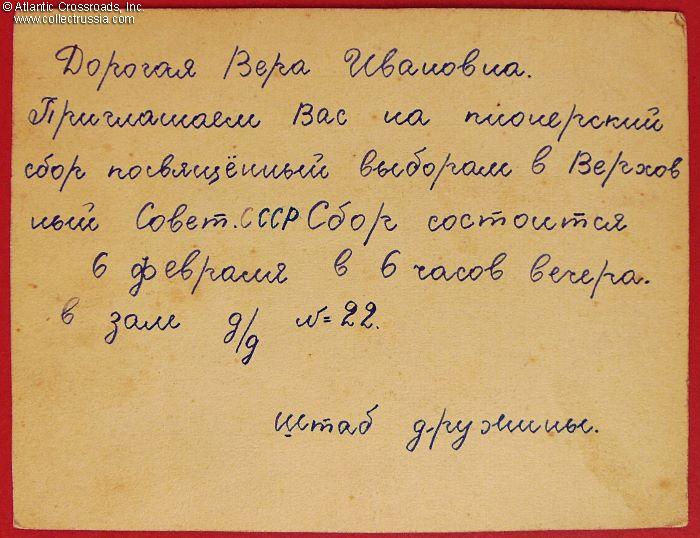 © Atlantic Crossroads, Inc.
www.collectrussia.com
Дорогая Вера Ивановна.
Приглашаем Вас на пионерский
сбор посвящённый выборам в Верхов
ный Совет.СССР Сбор состоится
6 февраля в 6 часов вечера.
в зале д/д №=22.
Штаб дружины.